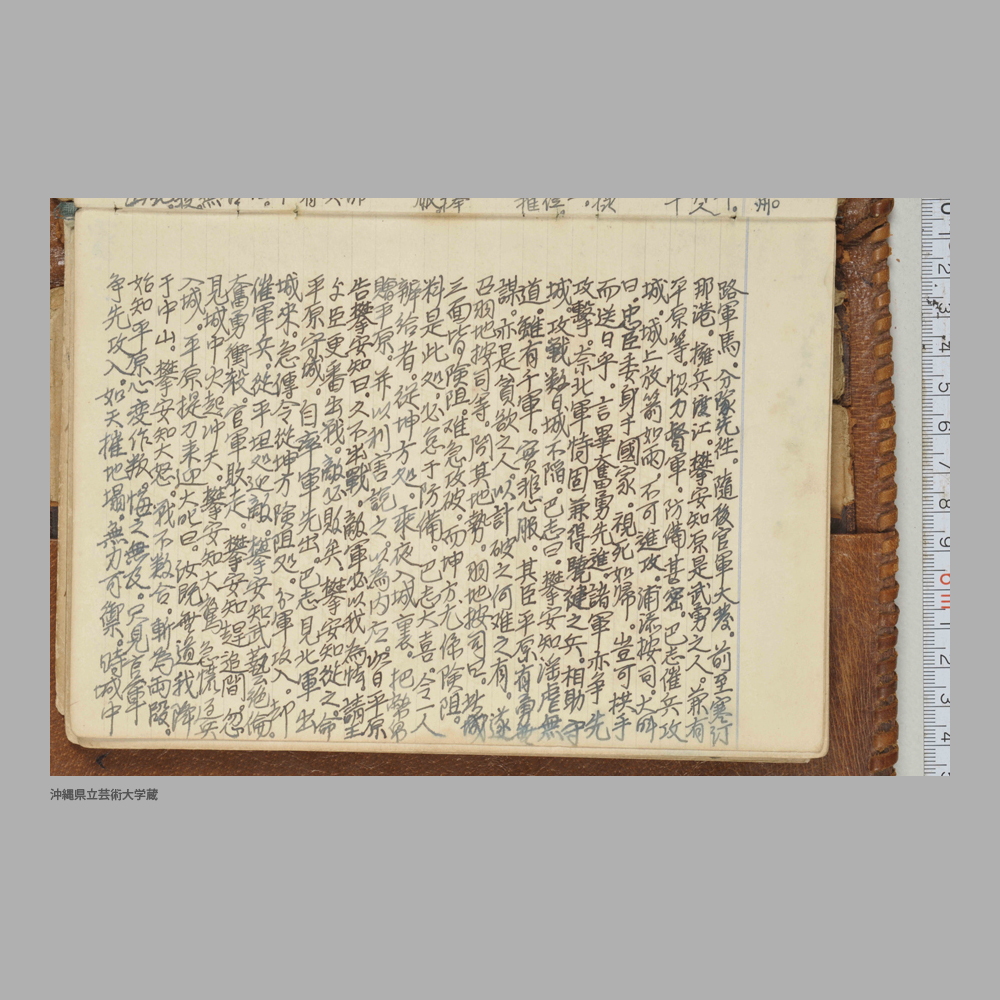 路軍馬。分隊先往。隨後官軍大發。前至寒汀
那港。擁兵渡江。攀安知原是武勇之人。兼有
平原等。協力督軍。防備甚密。巴志催兵攻
城。城上放箭如雨。不可進攻。浦添按司。大叫
曰。忠臣委身于國家。視死如帰。豈可拱手
而送日乎。言畢奮勇先進。諸軍亦争先
攻擊。奈北軍恃固。兼得驍健之兵。相助守
城。攻戰数日城不陥。巴志曰。攀安知淫虐無
道。雖有千軍。實非心服。其臣平原有勇無
謀。亦是貪欲之人。以計破之何难之有。遂
召羽地按司等。問其地勢。羽地按司曰。此城
三面皆険阻难急攻破。而坤方尤係険阻。
料是此処。必怠于防備。巴志大喜。令一人
辨給者。從坤方処。乘夜入城裏。把幣帛
賜平原。并以利害説之以為内応。此日平原
告攀安知曰。久不出戰。敵軍必以我為怯。請主
与臣更番出戰。敵必敗矣。攀安知從之命
平原守城。自率軍先出。巴志見北軍出
城来。急傳令從坤方険阻処。分軍攻入。却
催軍兵。從平坦処迎敵。攀安知武藝絶倫。
奮勇衝殺。官軍敗走。攀安知趕追間。忽
見城中火起冲天。攀安知大驚。急慌退兵
入城。平原提刀来迎大叱曰。汝既無道我降
于中山。攀安知大怒。戰不数合。斬為両段。
始知平原心変作叛。悔之無及。只見官軍
争先攻入。如天摧地塌。無力可禦。時城中
沖縄県立芸術大学蔵